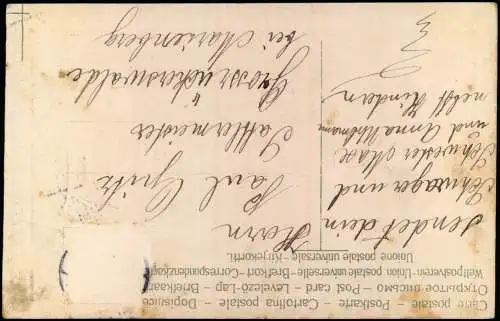 Carte postale — Postkarte — Cartolina postale — Dopisnice
Открытое письмо — Post card — Levelező-Lap — Briefkaart
Weltpostverein-Union postale universelle-Brefkort-Correspondenzkarte
Unione postale universale - Kirjekortti.
Herrn
Paul
Sattlermeister
Grossrückerswalde
bei Marienberg
sendet dein
Schwager und
Schwester Max
und Anna
nebst Kindern